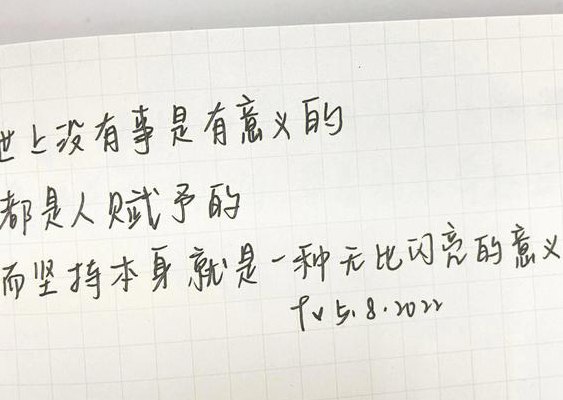 世上没有事是有意义的
都是人赋予的
而坚持本身就是一种无比闪亮的意义
5.8.2022